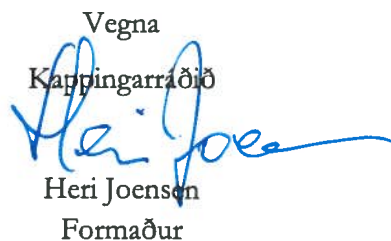 Vegna
Kappingarráðið
Heri Joensen
Heri Joensen
Formaður